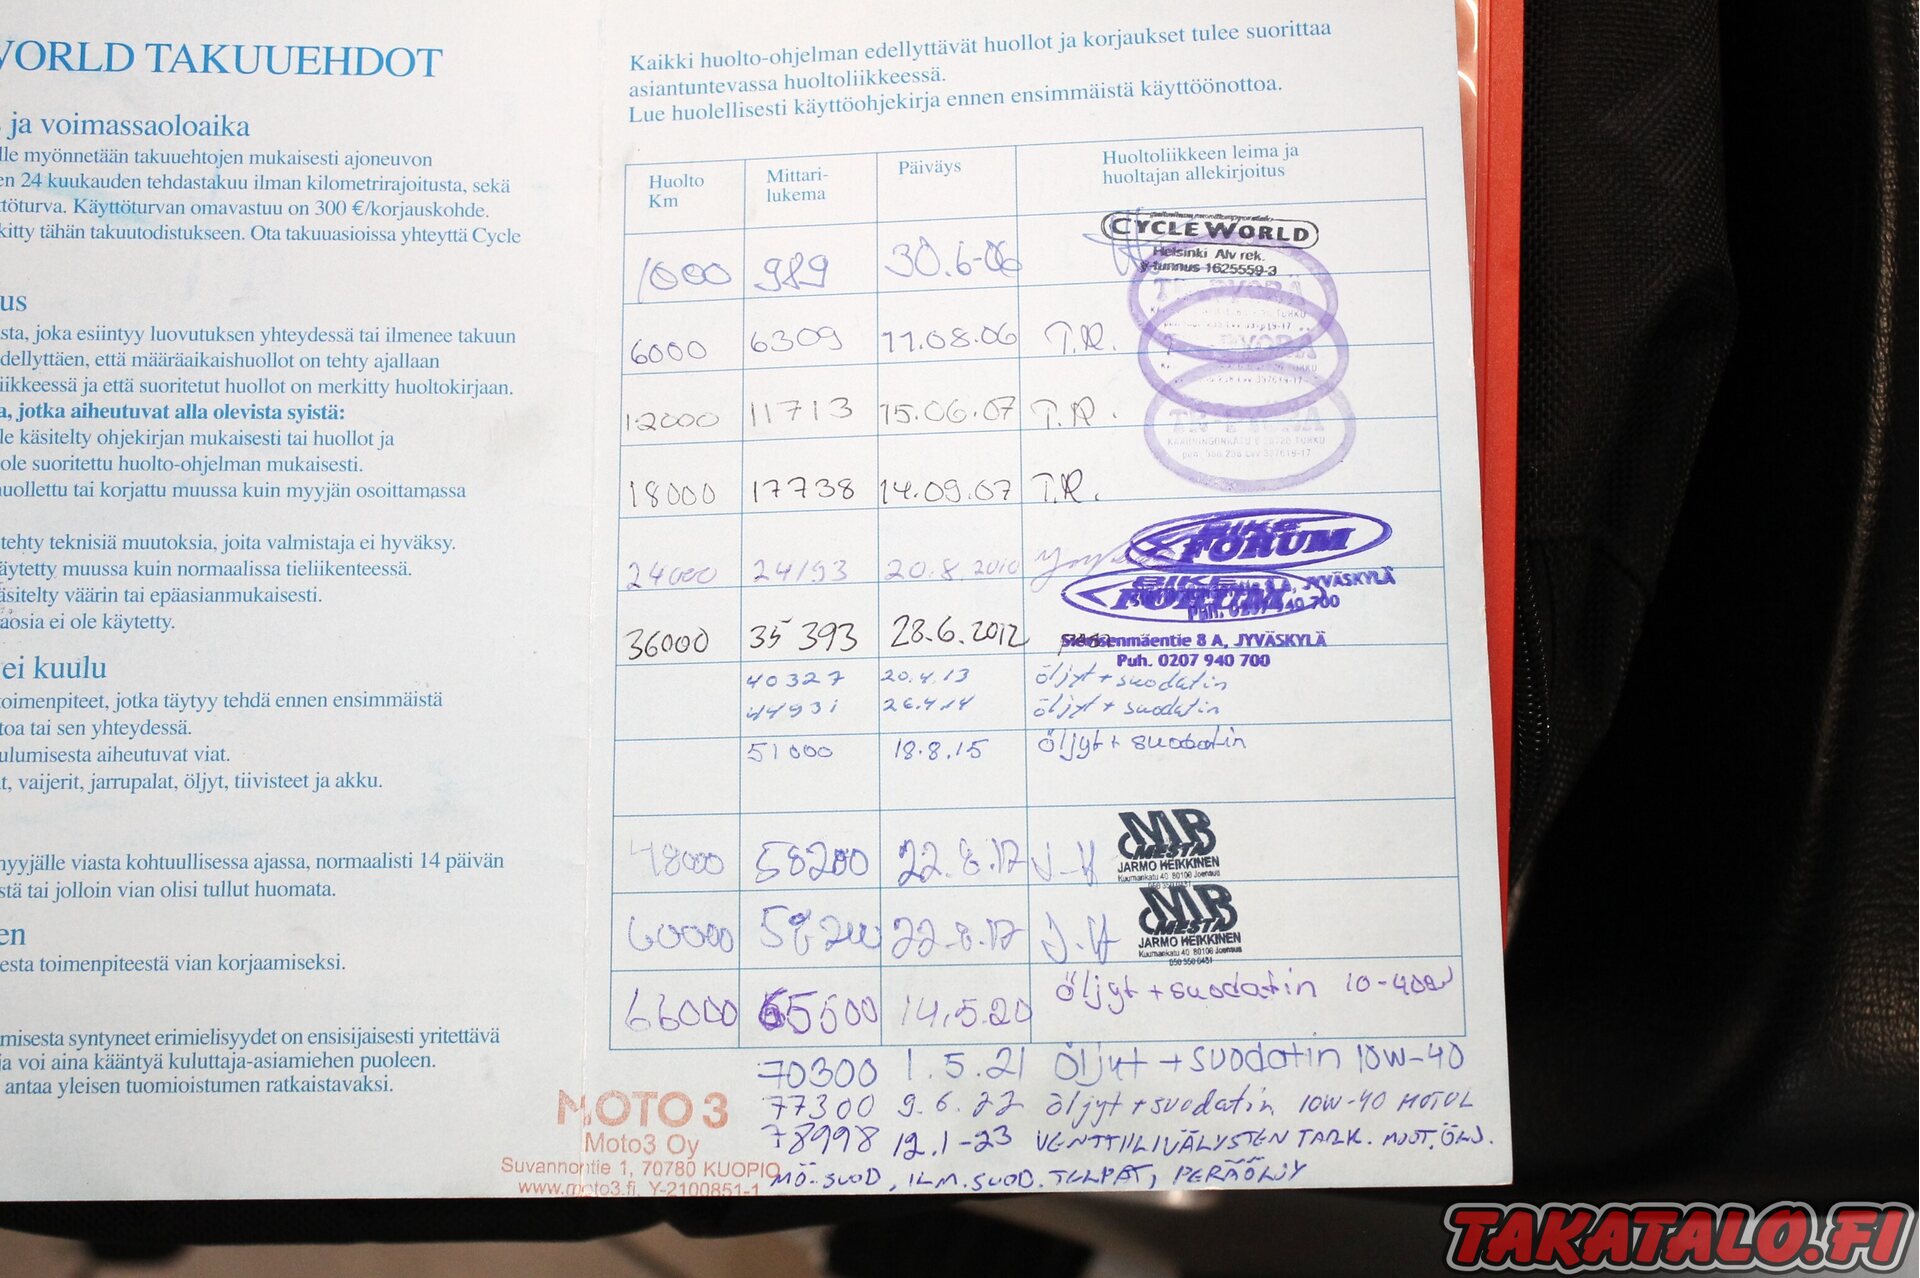 WORLD TAKUUEHDOT
ja voimassaoloaika
lle myönnetään takuuehtojen mukaisesti ajoneuvon
en 24 kuukauden tehdastakuu ilman kilometrirajoitusta, sekä
ttöturva. Käyttöturvan omavastuu on 300 €/korjauskohde.
kitty tähän takuutodistukseen. Ota takuuasioissa yhteyttä Cycle
us
sta, joka esiintyy luovutuksen yhteydessä tai ilmenee takuun
dellyttäen, että määräaikaishuollot on tehty ajallaan
iikkeessä ja että suoritetut huollot on merkitty huoltokirjaan.
a, jotka aiheutuvat alla olevista syistä:
le käsitelty ohjekirjan mukaisesti tai huollot ja
ole suoritettu huolto-ohjelman mukaisesti.
uollettu tai korjattu muussa kuin myyjän osoittamassa
tehty teknisiä muutoksia, joita valmistaja ei hyväksy.
äytetty muussa kuin normaalissa tieliikenteessä.
äsitelty väärin tai epäasianmukaisesti.
äosia ei ole käytetty.
ei kuulu
toimenpiteet, jotka täytyy tehdä ennen ensimmäistä
toa tai sen yhteydessä.
ulumisesta aiheutuvat viat.
t, vaijerit, jarrupalat, öljyt, tiivisteet ja akku.
nyyjälle viasta kohtuullisessa ajassa, normaalisti 14 päivän
stä tai jolloin vian olisi tullut huomata.
en
esta toimenpiteestä vian korjaamiseksi.
misesta syntyneet erimielisyydet on ensisijaisesti yritettävä
ja voi aina kääntyä kuluttaja-asiamiehen puoleen.
antaa yleisen tuomioistumen ratkaistavaksi.
Kaikki huolto-ohjelman edellyttävät huollot ja korjaukset tulee suorittaa
asiantuntevassa huoltoliikkeessä.
Lue huolellisesti käyttöohjekirja ennen ensimmäistä käyttöönottoa.
Huolto Km
Mittari-lukema
Päiväys
Huoltoliikkeen leima ja
huoltajan allekirjoitus
1000 989 30.6-06
CYCLE WORLD
Helsinki Alv rek.
y-tunnus 1625559-3
6000 6309 11.08.06 T.R.
12000 11713 15.06.07 T.R.
18000 17738 14.09.07 T.R.
24000 24193 20.8.2010
BIKE FORUM
36000 35 393 28.6.2012
BIKE FORUM
8 A, JYVÄSKYLÄ
Puh. 0207 940 700
8 A, JYVÄSKYLÄ
Puh. 0207 940 700
40327 20.4.13 öljyt + suodatin
44931 26.4.14 öljyt + suodatin
51000 18.8.15 öljyt + suodatin
48000 58200 22.8.17 J-H
MB
MESTA
JARMO HEIKKINEN
Kuurnankatu 40 80106 Joensuu
60000 58200 22.8.17 J-H
MB
MESTA
JARMO HEIKKINEN
Kuurnankatu 40 80106 Joensuu
050 550 0451
66000 65500 14.5.20 öljyt + suodatin 10-40W
70300 1.5.21 öljyt + suodatin 10W-40
77300 9.6.22 öljyt + suodatin 10W-40 MOTUL
78998 12.1-23 VENTTIILIVÄLYSTEN TARK. MOOT.ÖLJ.
MÖ-SUOD, ILM.SUOD. TULPAT, PERÄÖLJY
MOTO 3
Moto3 Oy
Suvannontie 1, 70780 KUOPIO
www.moto3.fi, Y-2100851-1
TAKATALO.FI